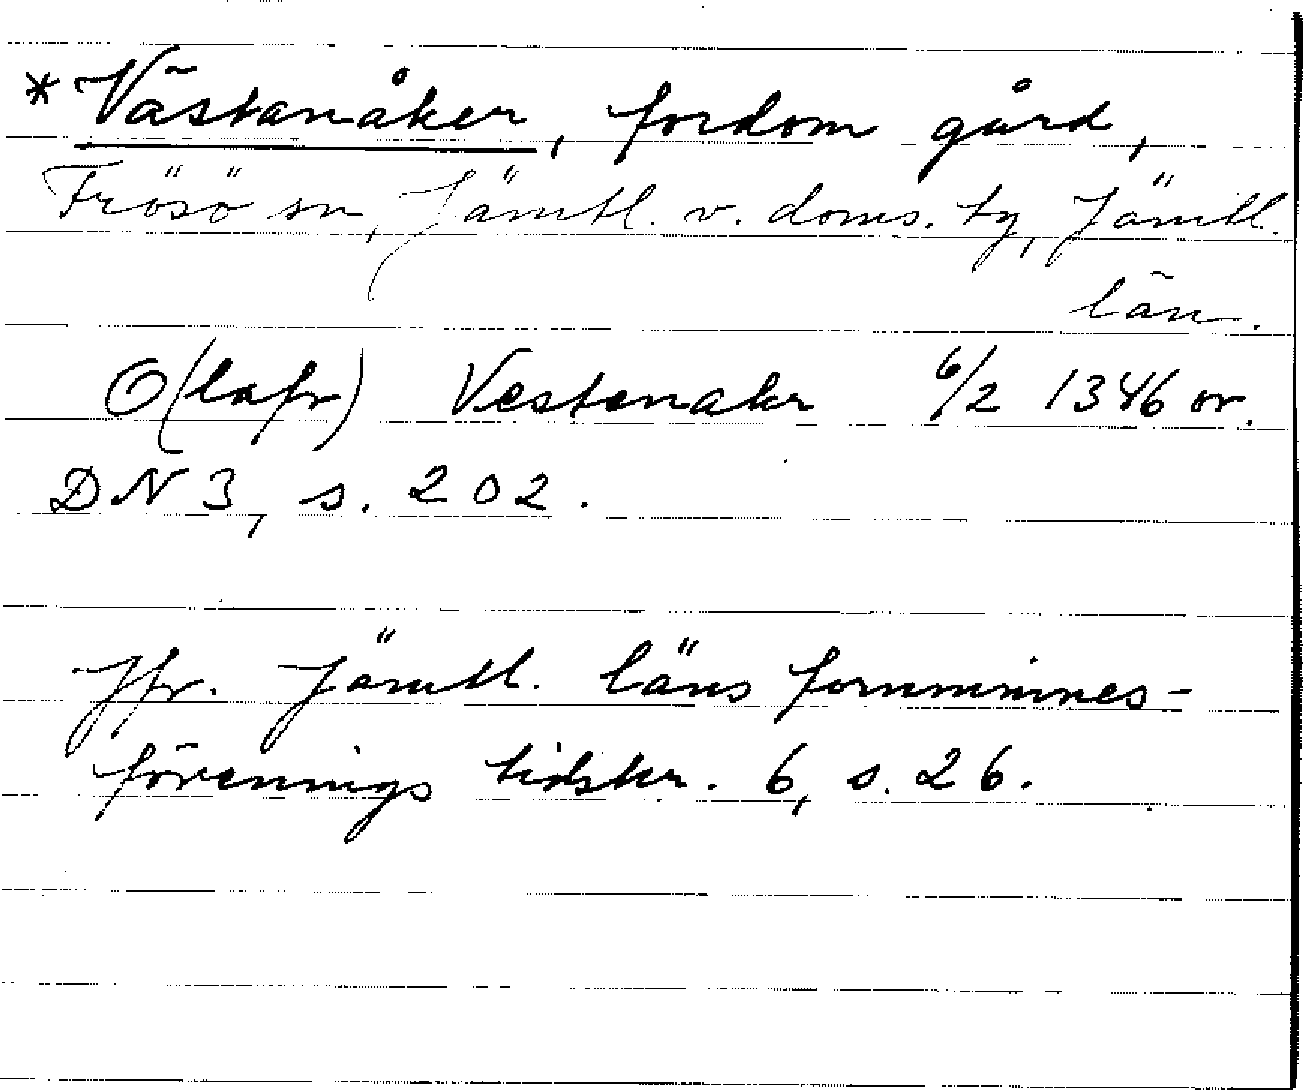 *Västanåker, fordom gård,
Frösö sn, Jämtl. v. doms. tg, Jämtl.
län.
O(lafr) Vestenakr 6/2 1346 or.
DN 3, s. 202.
Jfr. Jämtl. läns fornminnes-
förenings tidskr. 6, s. 26.